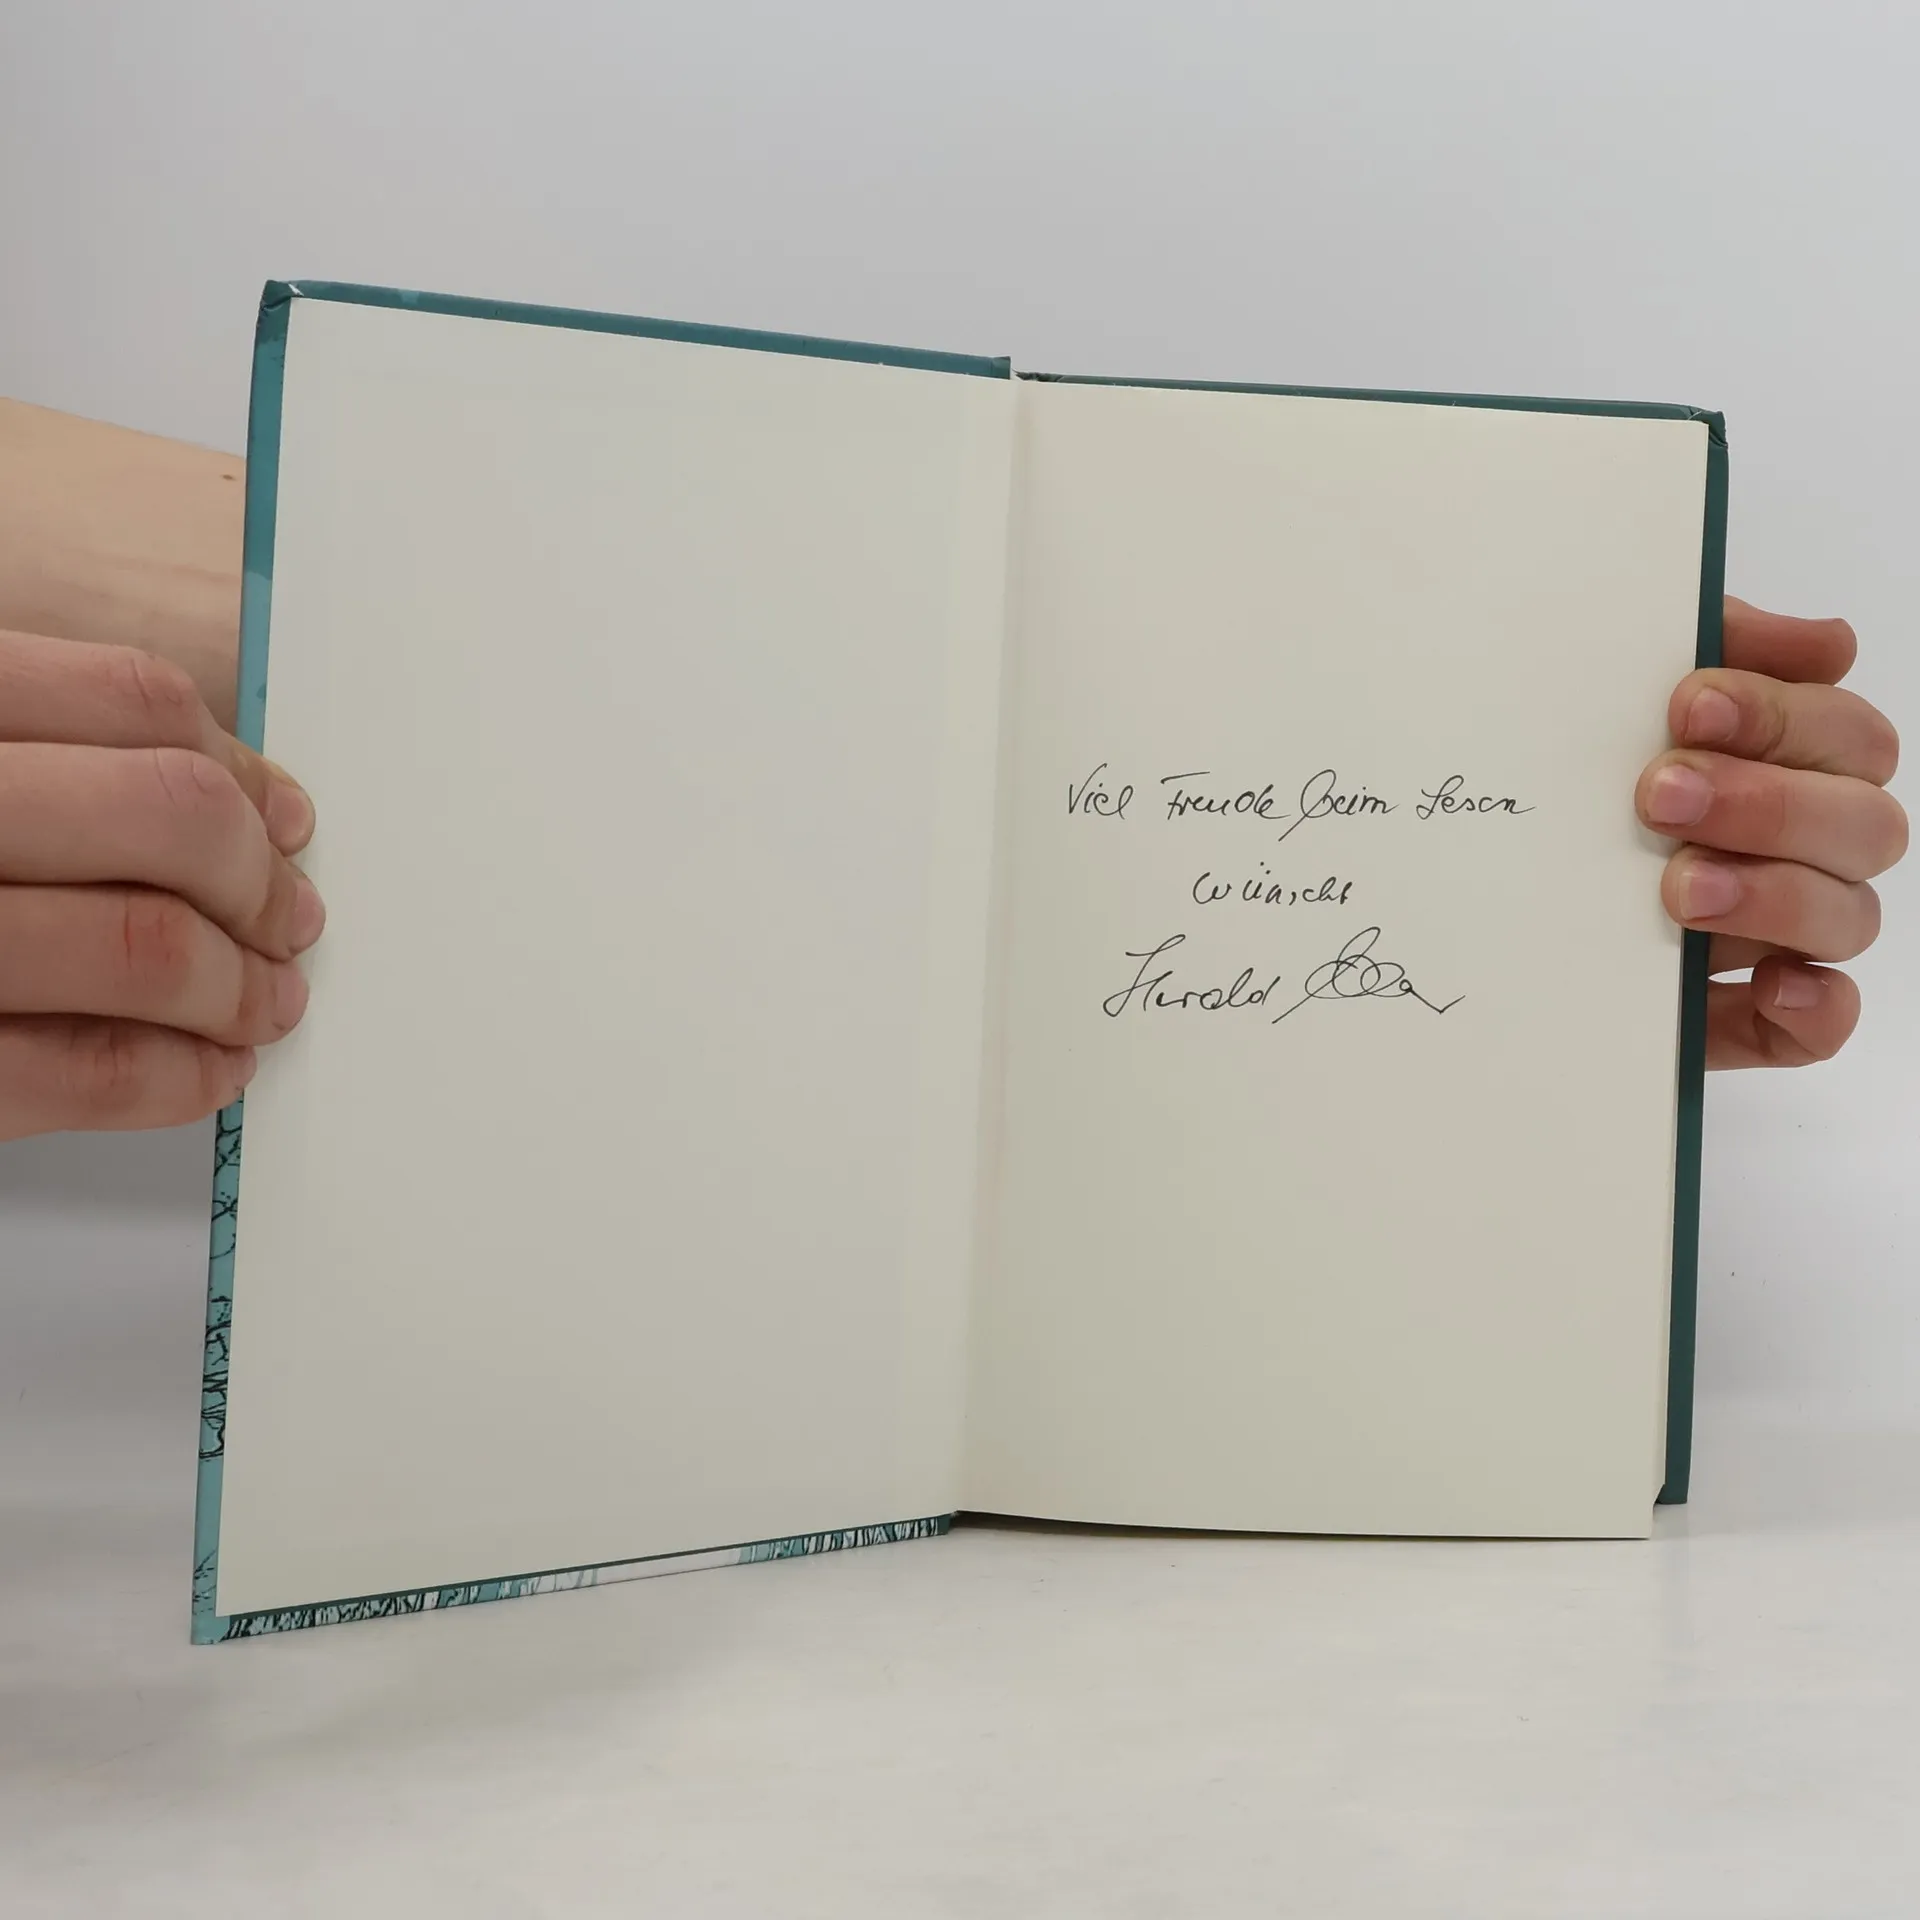 Viel Freude beim Lesen
wünscht
Harald